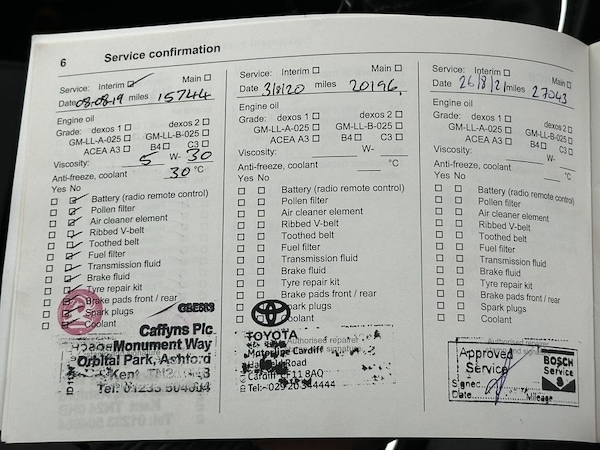 6 Service confirmation
Service: Interim Main
Date 08-08-19 miles 15744
Engine oil
Grade: dexos 1 dexos 2
GM-LL-A-025 GM-LL-B-025
ACEA A3 B4 C3
Viscosity: 5 W- 30
Anti-freeze, coolant 30 °C
Yes No
Battery (radio remote control)
Pollen filter
Air cleaner element
Ribbed V-belt
Toothed belt
Fuel filter
Transmission fluid
Brake fluid
Tyre repair kit
Brake pads front / rear
Spark plugs
Coolant
Caffyns Plc
Monument Way
Orbital Park, Ashford
Kent
Tel: 01233 504604
Service: Interim Main
Date 3/8/20 miles 20196
Engine oil
Grade: dexos 1 dexos 2
GM-LL-A-025 GM-LL-B-025
ACEA A3 B4 C3
Viscosity: W-
Anti-freeze, coolant °C
Yes No
Battery (radio remote control)
Pollen filter
Air cleaner element
Ribbed V-belt
Toothed belt
Fuel filter
Transmission fluid
Brake fluid
Tyre repair kit
Brake pads front / rear
Spark plugs
Coolant
TOYOTA
Authorised repairer
Motorline Cardiff
Road
Cardiff CF11 8AQ
Tel:- 029 20 344444
Service: Interim Main
Date 26/8/21 miles 27043
Engine oil
Grade: dexos 1 dexos 2
GM-LL-A-025 GM-LL-B-025
ACEA A3 B4 C3
Viscosity: W-
Anti-freeze, coolant °C
Yes No
Battery (radio remote control)
Pollen filter
Air cleaner element
Ribbed V-belt
Toothed belt
Fuel filter
Transmission fluid
Brake fluid
Tyre repair kit
Brake pads front / rear
Spark plugs
Coolant
Approved
Service
Signed
Date Mileage
BOSCH
Service